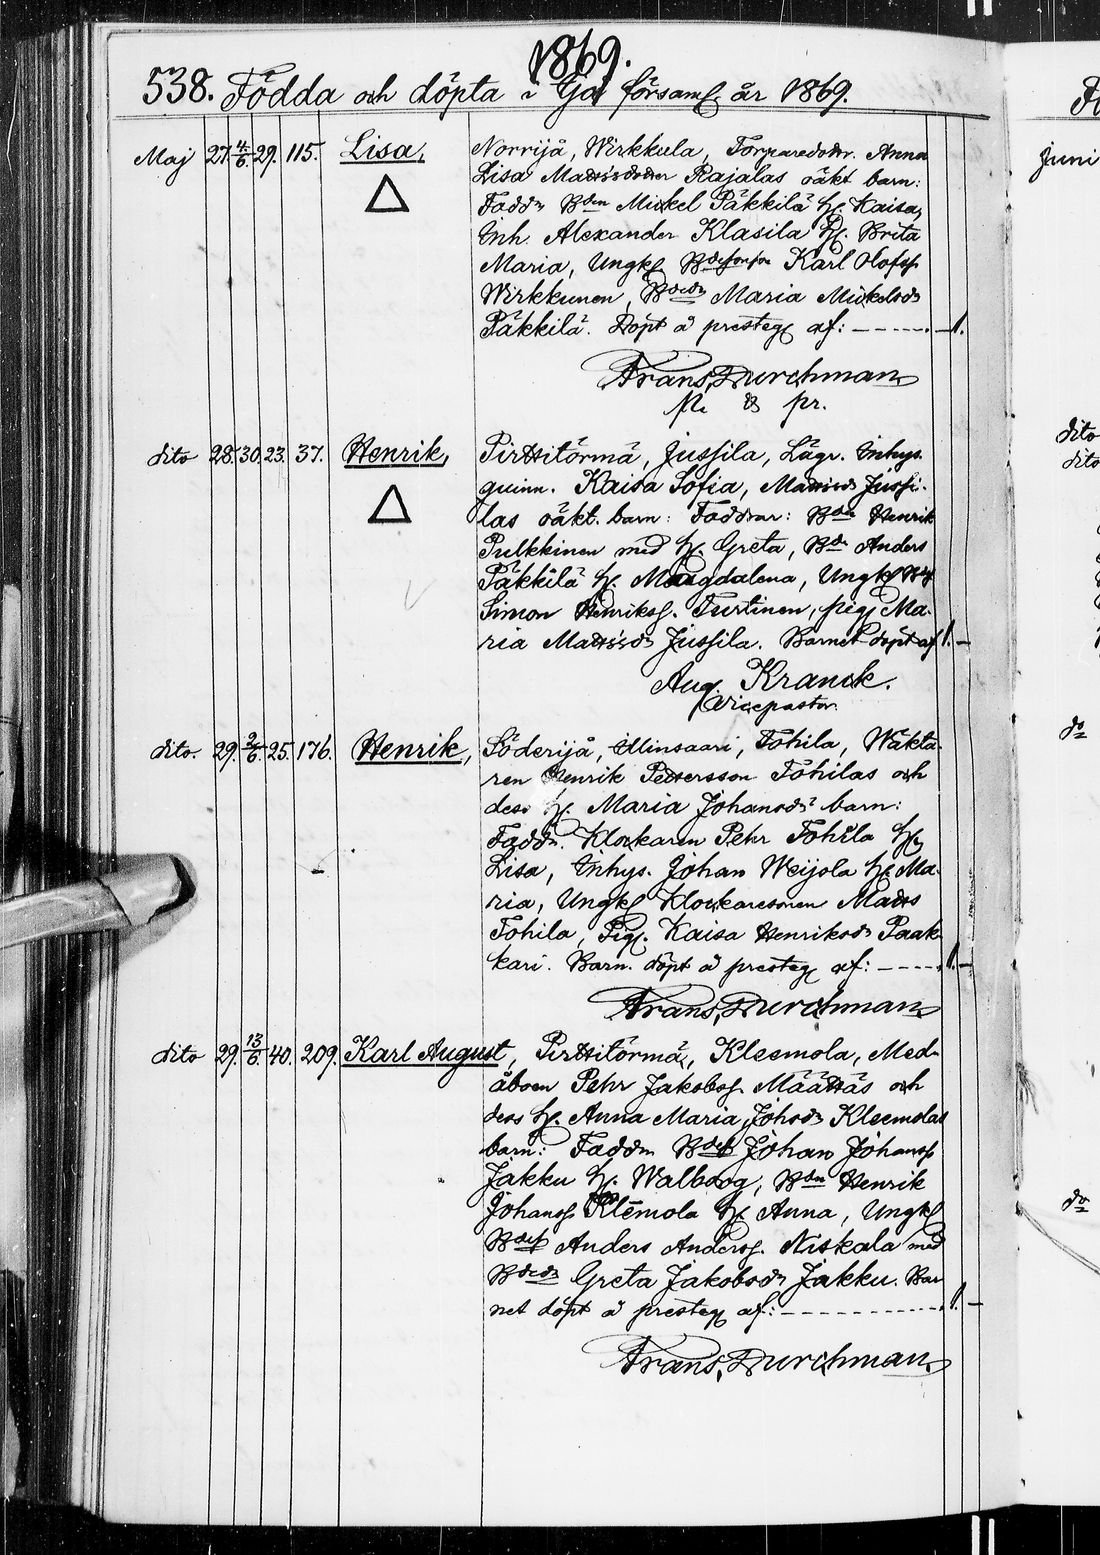 1869.
538. Födda och döpta i Ijo församl. år 1869.
Maj 27. 4/6. 29. 115. Lisa, Norrijå, Wirkkula, Torparedottr. Anna
Lisa Mattsdotter Rajalas oäkt barn:
Faddr Bden Mickel Päkkilä h. Kaisa,
Inh. Alexander Klasila h. Brita
Maria, Ungk. Bdesonen Karl Olofss.
Wirkkunen, Bdedr Maria Mickelsdr
Päkkilä. Döpt å presteg. af: 1.
Frans Durchman
p. & pr.
dito 28. 30. 23. 37. Henrik, Pirttitörmä, Jussila, Lägr. Inhys.
quinn. Kaisa Sofia, Mattsdr Jussi-
las oäkt. barn: Faddrar: Bden Henrik
Pulkkinen med h. Greta, Bdn Anders
Päkkilä h. Magdalena, Ungk.
Simon Henrikss. Turtinen, pig. Ma-
ria Mattsdr Jussila. Barnet döpt af 1.
Aug. Kranck.
Vicepastor.
dito. 29. 2/6. 25. 176. Henrik, Söderijå, Illinsaari, Tohila, Wäkta-
ren Henrik Pettersson Tohilas och
dess h. Maria Johansdr barn:
Faddr. Klockaren Pehr Tohila h.
Lisa, Inhys. Johan Weijola h. Ma-
ria, Ungk. Klockaresonen Matts
Tohila, Pig. Kaisa Henriksdr Paak-
kari. Barn. döpt å presteg. af: 1.
Frans Durchman
dito 29. 13/6. 40. 209. Karl August, Pirttitörmä, Kleemola, Med-
åboen Pehr Jakobss. Määttäs och
dess h. Anna Maria Johsdr Kleemolas
barn: Faddr Bdes Johan Johanss
Jakku h. Walborg, Bdn Henrik
Johanss Klemola h. Anna, Ungk.
Bdes Anders Anderss. Niskala med
Bdedr Greta Jakobsdr Jakku. Bar
net döpt å presteg. af: 1.
Frans Durchman
juni
dito
dito
do
do